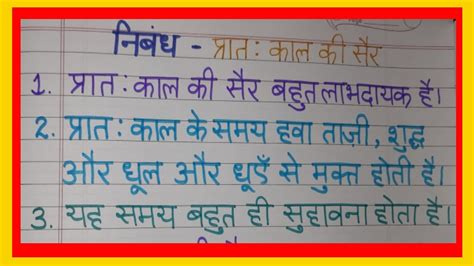 निबंध - प्रात: काल की सैर
1. प्रात: काल की सैर बहुत लाभदायक है।
2. प्रात: काल के समय हवा ताज़ी, शुद्ध
और धूल और धूएँ से मुक्त होती है।
3. यह समय बहुत ही सुहावना होता है।